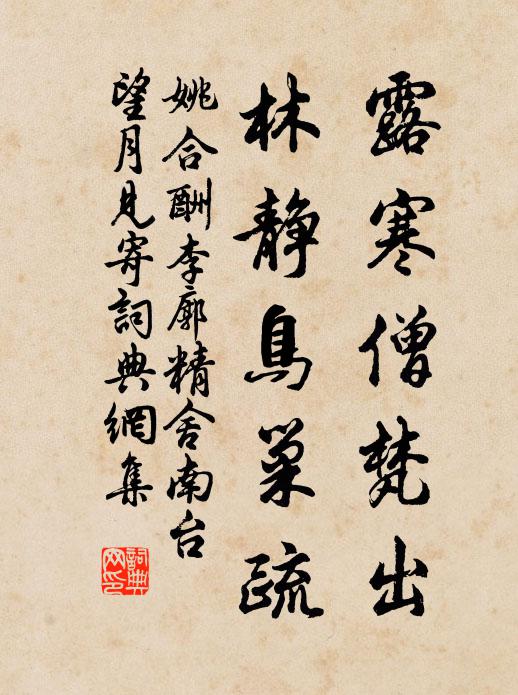 露寒僧梵出
林静鳥巢疏
姚合酬李廓精舍南台
望月見寄詞典網集
詞典
网印